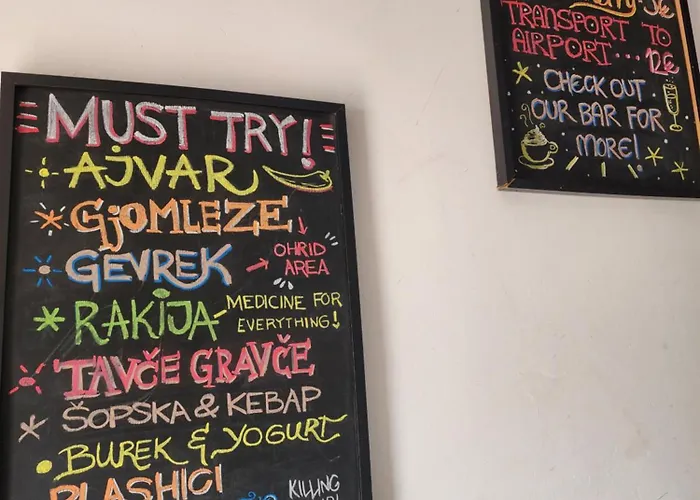 MUST TRY!
AJVAR
GJOMLEZE
GEVREK
OHRID
AREA
RAKIJA
MEDICINE FOR
EVERYTHING!
TAVČE GRAVČE
ŠOPSKA & KEBAP
BUREK & YOGURT
PLASHICI
KILLING
TRANSPORT TO
AIRPORT... 12€
CHECK OUT
OUR BAR FOR
MORE!